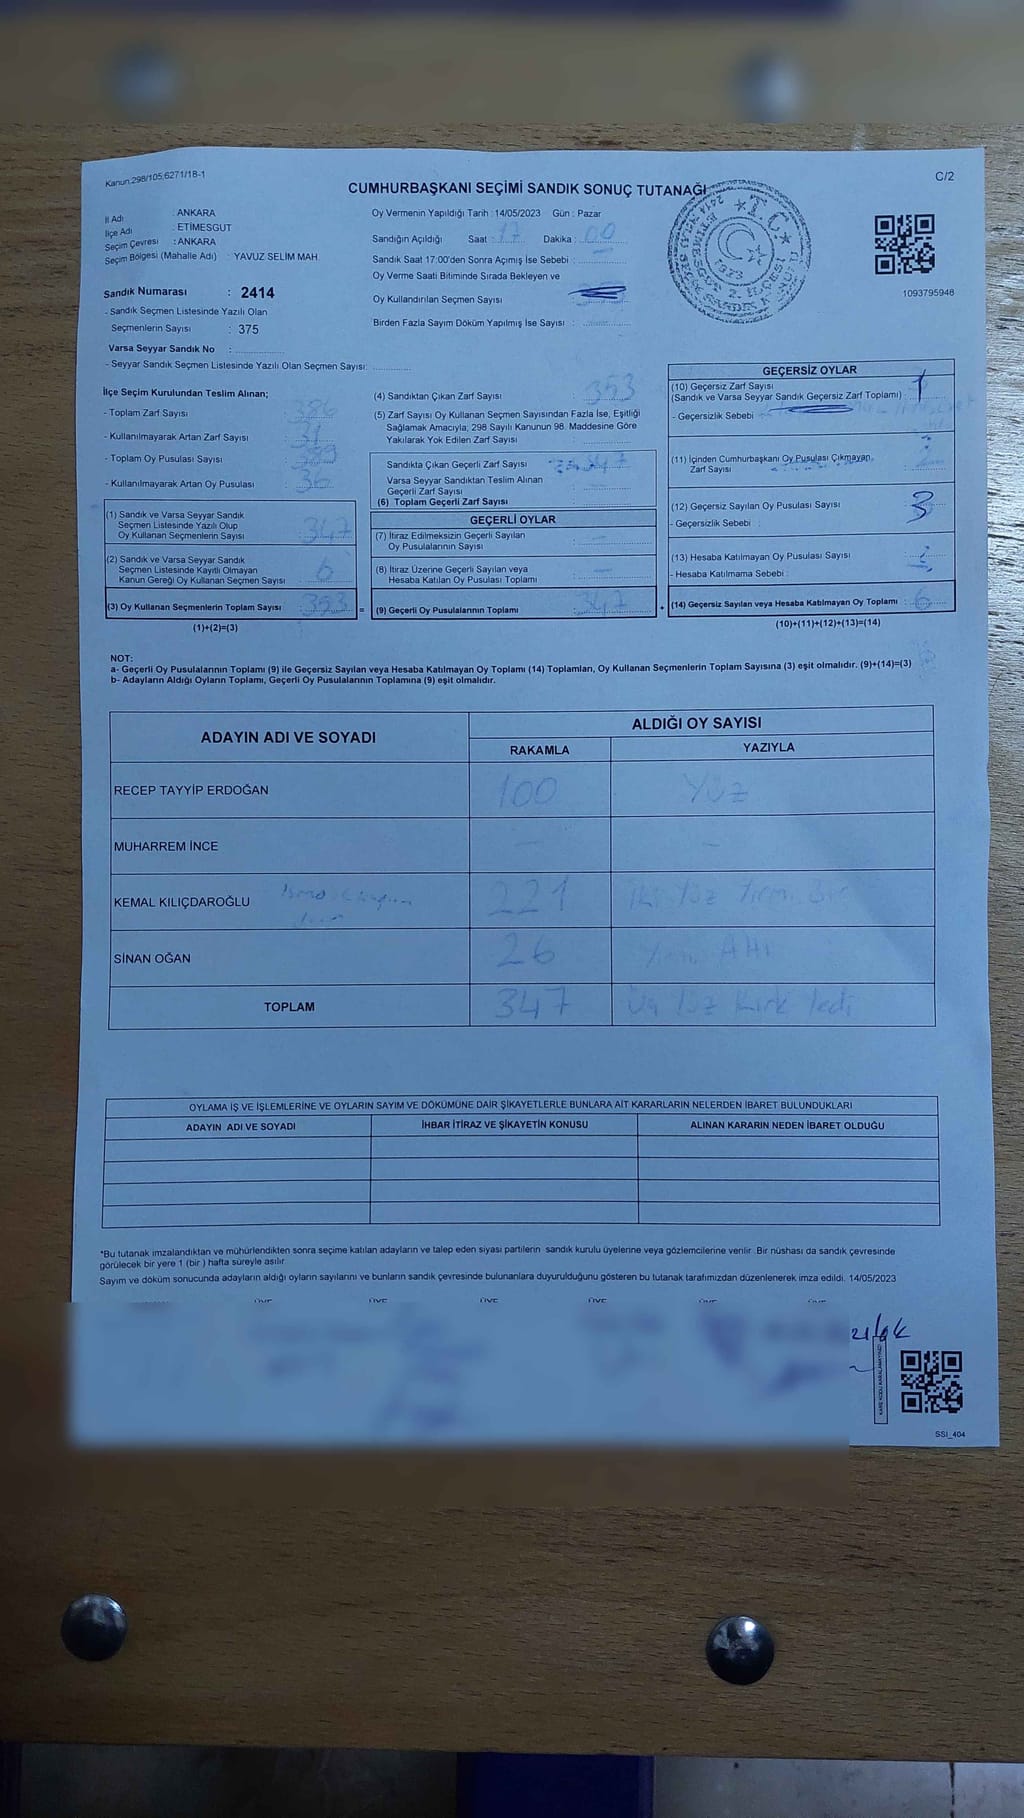 Kanun:298/105;6271/18-1
C/2
CUMHURBAŞKANI SEÇİMİ SANDIK SONUÇ TUTANAĞI
İl Adı : ANKARA
İlçe Adı : ETİMESGUT
Seçim Çevresi : ANKARA
Seçim Bölgesi (Mahalle Adı) : YAVUZ SELİM MAH.
Sandık Numarası : 2414
- Sandık Seçmen Listesinde Yazılı Olan
Seçmenlerin Sayısı : 375
Varsa Seyyar Sandık No :
- Seyyar Sandık Seçmen Listesinde Yazılı Olan Seçmen Sayısı:
Oy Vermenin Yapıldığı Tarih : 14/05/2023 Gün : Pazar
Sandığın Açıldığı Saat : 17 Dakika : 00
Sandık Saat 17:00'den Sonra Açımış İse Sebebi :
Oy Verme Saati Bitiminde Sırada Bekleyen ve
Oy Kullandırılan Seçmen Sayısı
Birden Fazla Sayım Döküm Yapılmış İse Sayısı :
T.C.
1093795948
İlçe Seçim Kurulundan Teslim Alınan;
- Toplam Zarf Sayısı : 386
- Kullanılmayarak Artan Zarf Sayısı :
- Toplam Oy Pusulası Sayısı : 389
- Kullanılmayarak Artan Oy Pusulası : 36
(1) Sandık ve Varsa Seyyar Sandık
Seçmen Listesinde Yazılı Olup
Oy Kullanan Seçmenlerin Sayısı : 347
(2) Sandık ve Varsa Seyyar Sandık
Seçmen Listesinde Kayıtlı Olmayan
Kanun Gereği Oy Kullanan Seçmen Sayısı : 6
(3) Oy Kullanan Seçmenlerin Toplam Sayısı : 353 =
(1)+(2)=(3)
(4) Sandıktan Çıkan Zarf Sayısı : 353
(5) Zarf Sayısı Oy Kullanan Seçmen Sayısından Fazla İse, Eşitliği
Sağlamak Amacıyla, 298 Sayılı Kanunun 98. Maddesine Göre
Yakılarak Yok Edilen Zarf Sayısı :
Sandıkta Çıkan Geçerli Zarf Sayısı : 347
Varsa Seyyar Sandıktan Teslim Alınan
Geçerli Zarf Sayısı
(6) Toplam Geçerli Zarf Sayısı
GEÇERLİ OYLAR
(7) İtiraz Edilmeksizin Geçerli Sayılan
Oy Pusulalarının Sayısı : —
(8) İtiraz Üzerine Geçerli Sayılan veya
Hesaba Katılan Oy Pusulası Toplamı : —
(9) Geçerli Oy Pusulalarının Toplamı : 347 +
GEÇERSİZ OYLAR
(10) Geçersiz Zarf Sayısı
(Sandık ve Varsa Seyyar Sandık Geçersiz Zarf Toplamı) : 1
- Geçersizlik Sebebi
(11) İçinden Cumhurbaşkanı Oy Pusulası Çıkmayan
Zarf Sayısı : 2
(12) Geçersiz Sayılan Oy Pusulası Sayısı : 3
- Geçersizlik Sebebi :
(13) Hesaba Katılmayan Oy Pusulası Sayısı
- Hesaba Katılmama Sebebi :
(14) Geçersiz Sayılan veya Hesaba Katılmayan Oy Toplamı : 6
(10)+(11)+(12)+(13)=(14)
NOT:
a- Geçerli Oy Pusulalarının Toplamı (9) ile Geçersiz Sayılan veya Hesaba Katılmayan Oy Toplamı (14) Toplamları, Oy Kullanan Seçmenlerin Toplam Sayısına (3) eşit olmalıdır. (9)+(14)=(3)
b- Adayların Aldığı Oyların Toplamı, Geçerli Oy Pusulalarının Toplamına (9) eşit olmalıdır.
ADAYIN ADI VE SOYADI
ALDIĞI OY SAYISI
RAKAMLA YAZIYLA
RECEP TAYYİP ERDOĞAN 100 Yüz
MUHARREM İNCE — —
KEMAL KILIÇDAROĞLU 221 İki Yüz Yirmi Bir
SİNAN OĞAN 26 Yirmi Altı
TOPLAM 347 Üç Yüz Kırk Yedi
OYLAMA İŞ VE İŞLEMLERİNE VE OYLARIN SAYIM VE DÖKÜMÜNE DAİR ŞİKAYETLERLE BUNLARA AİT KARARLARIN NELERDEN İBARET BULUNDUKLARI
ADAYIN ADI VE SOYADI İHBAR İTİRAZ VE ŞİKAYETİN KONUSU ALINAN KARARIN NEDEN İBARET OLDUĞU
*Bu tutanak imzalandıktan ve mühürlendikten sonra seçime katılan adayların ve talep eden siyasi partilerin sandık kurulu üyelerine veya gözlemcilerine verilir. Bir nüshası da sandık çevresinde
görülecek bir yere 1 (bir) hafta süreyle asılır.
Sayım ve döküm sonucunda adayların aldığı oyların sayılarını ve bunların sandık çevresinde bulunanlara duyurulduğunu gösteren bu tutanak tarafımızdan düzenlenerek imza edildi. 14/05/2023
ÜYE ÜYE ÜYE ÜYE ÜYE ÜYE
KARE KODU KARALAMAYINIZ
SSI_404